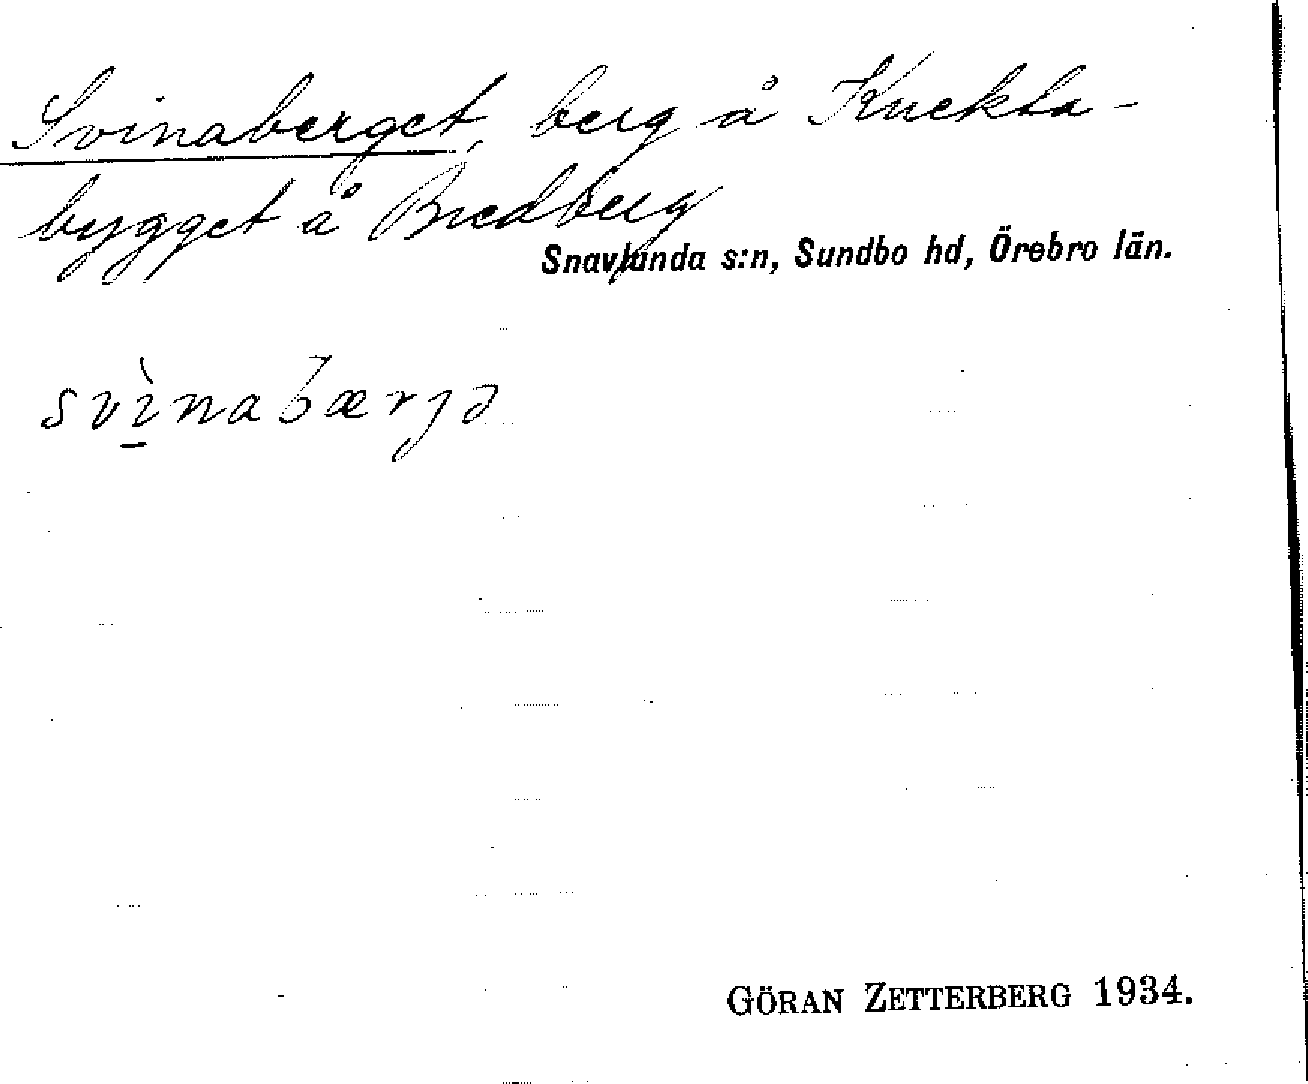 Svinaberget, berg å Knekta-
bygget å Bredberg
Snavlunda s:n, Sundbo hd, Örebro län.
svìnabærjə
GÖRAN ZETTERBERG 1934.